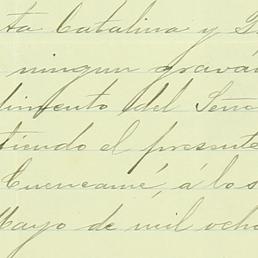 ta Catalina y
ningun gravá
limento del Seno
tiendo el presente
Cuencamé, á los
Mayo de mil ocho